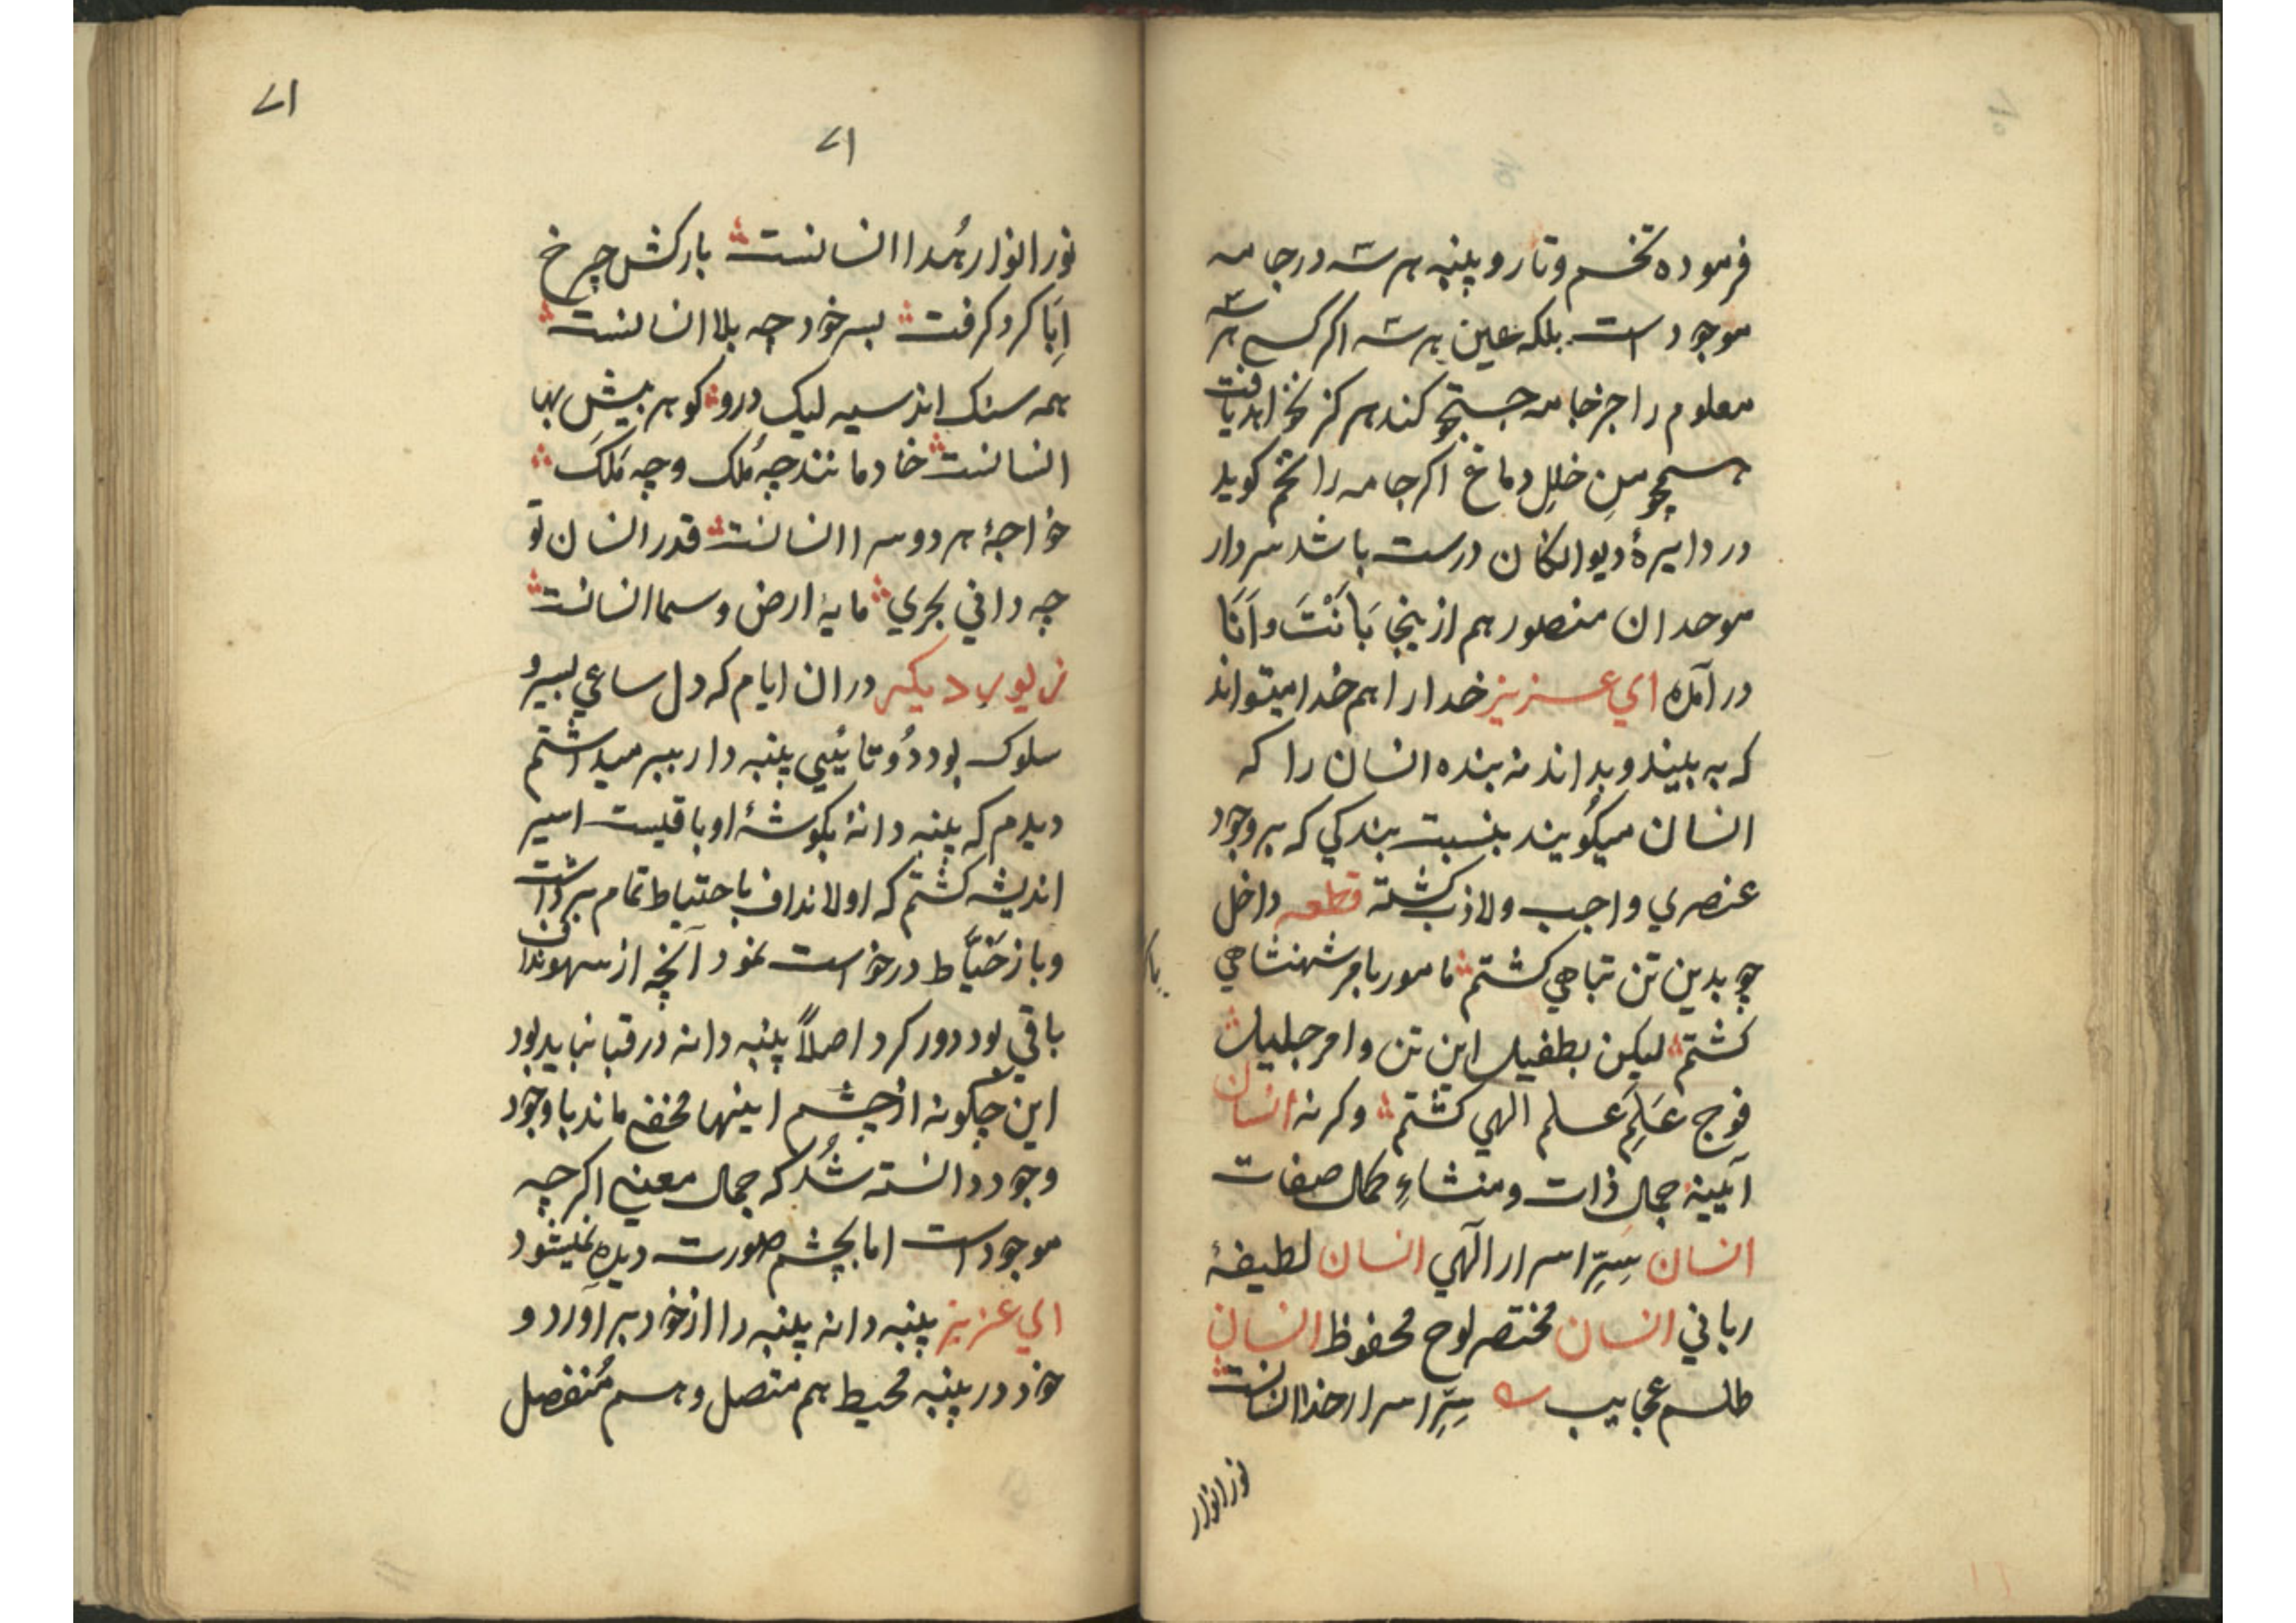 فرموده تخم و تار و پنبه هر سه در جامه
موجود است بلکه عین هر سه اکر کسی هر سه
معلوم را جز جامه جستجو کند هرکز نخواهد یافت
خلل دماغ اکر جامه را تخم کوید
در دایرۀ دیوانکان درست باشد سردار
موحدان منصور هم ازینجا بَانْتَ وَاَنَا
در آمده ای عزیز خدا را هم خدا میتواند
که به بیند و بداند نه بنده انسان را که
انسان میکُویند بنسبت بندکی که بر وجود
عنصری واجب ولاذب کشته قطعه داخل
چو بدین تن تباهی کشتم مامور بامر شهنشاهی
کشتم لیکن بطفیل این تن و امر جلیل
فوج عَلَمِ علم الهی کشتم وکرنه انسان
آیینۀ جمال ذات و منشاءِ کمال صفات
انسان سِرِّ اسرار آلهی انسان لطیفۀ
ربانی انسان مختصر لوح محفوظ انسان
طلسم عجایب سِرِّ اسرار خدا انسانست
نور انوار
۷۱
۷۱
نور انوار هُدا انسانست بارکش چرخ
اِبَا کرد کرفت بسر خود چه بلا انسانست
همه سنک اند سیه لیک درو کوهر بیش بها
انسانست خادمانند چه مُلک و چه مَلَک
خواجۀ هر دو سرا انسانست قدر انسان تو
چه دانی بحری مایۀ ارض و سما انسانست
زیور دیکر در ان ایام که دل ساعی بسیر و
سلوک بود دُوتایٔیی پنبه دار ببر میداشتم
دیدم که پنبه دانۀ بکوشۀ او باقیست اسیر
اندیشه کشتم که اولا نداف باحتیاط تمام برداشت
و باز خَیَّاط درخواست نمود آنچه از سهو نداف
باقی بود دور کرد اصلاً پنبه دانه در قبا نباید بود
این چکونه از چشم اینها مخفی ماند با وجود
وجود دانسته شُد که جمال معنی اکرچه
موجود است اما بچشم صورت دیده نمیشود
ای عزیز پنبه دانه پنبه را از خود برآورد و
خود در پنبه محیط هم متصل و هم مُنفصل